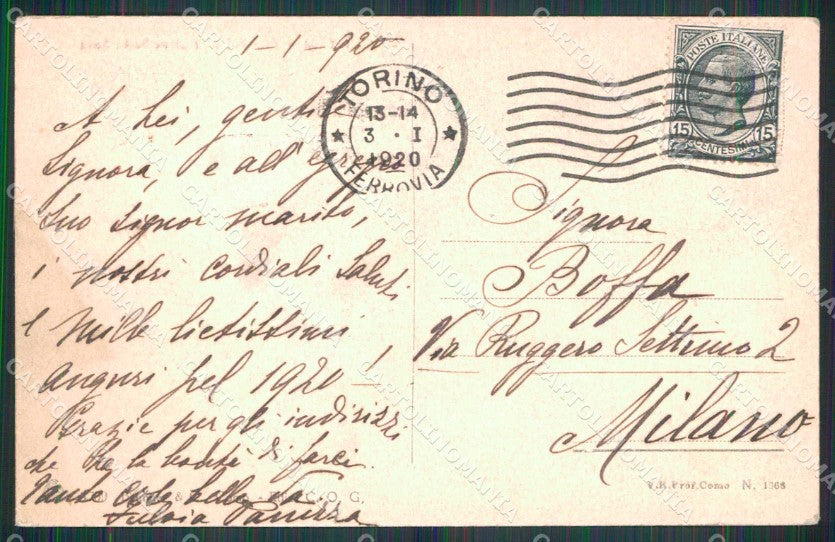 1-1-920
A Lei, gentile
Signora, e all'egregio
Suo signor marito,
i nostri cordiali saluti
e mille lietissimi
auguri pel 1920!
Grazie per gli indirizzi
che ha la bontà di farci.
Tante cose belle da
Fulvia
TORINO
13-14
3 · I
1920
FERROVIA
POSTE ITALIANE
15 15
CENTESIMI
Signora
Boffa
Via Ruggero Settimo 2
Milano
V.R. Prof. Como N. 1368
CARTOLINOMANIA